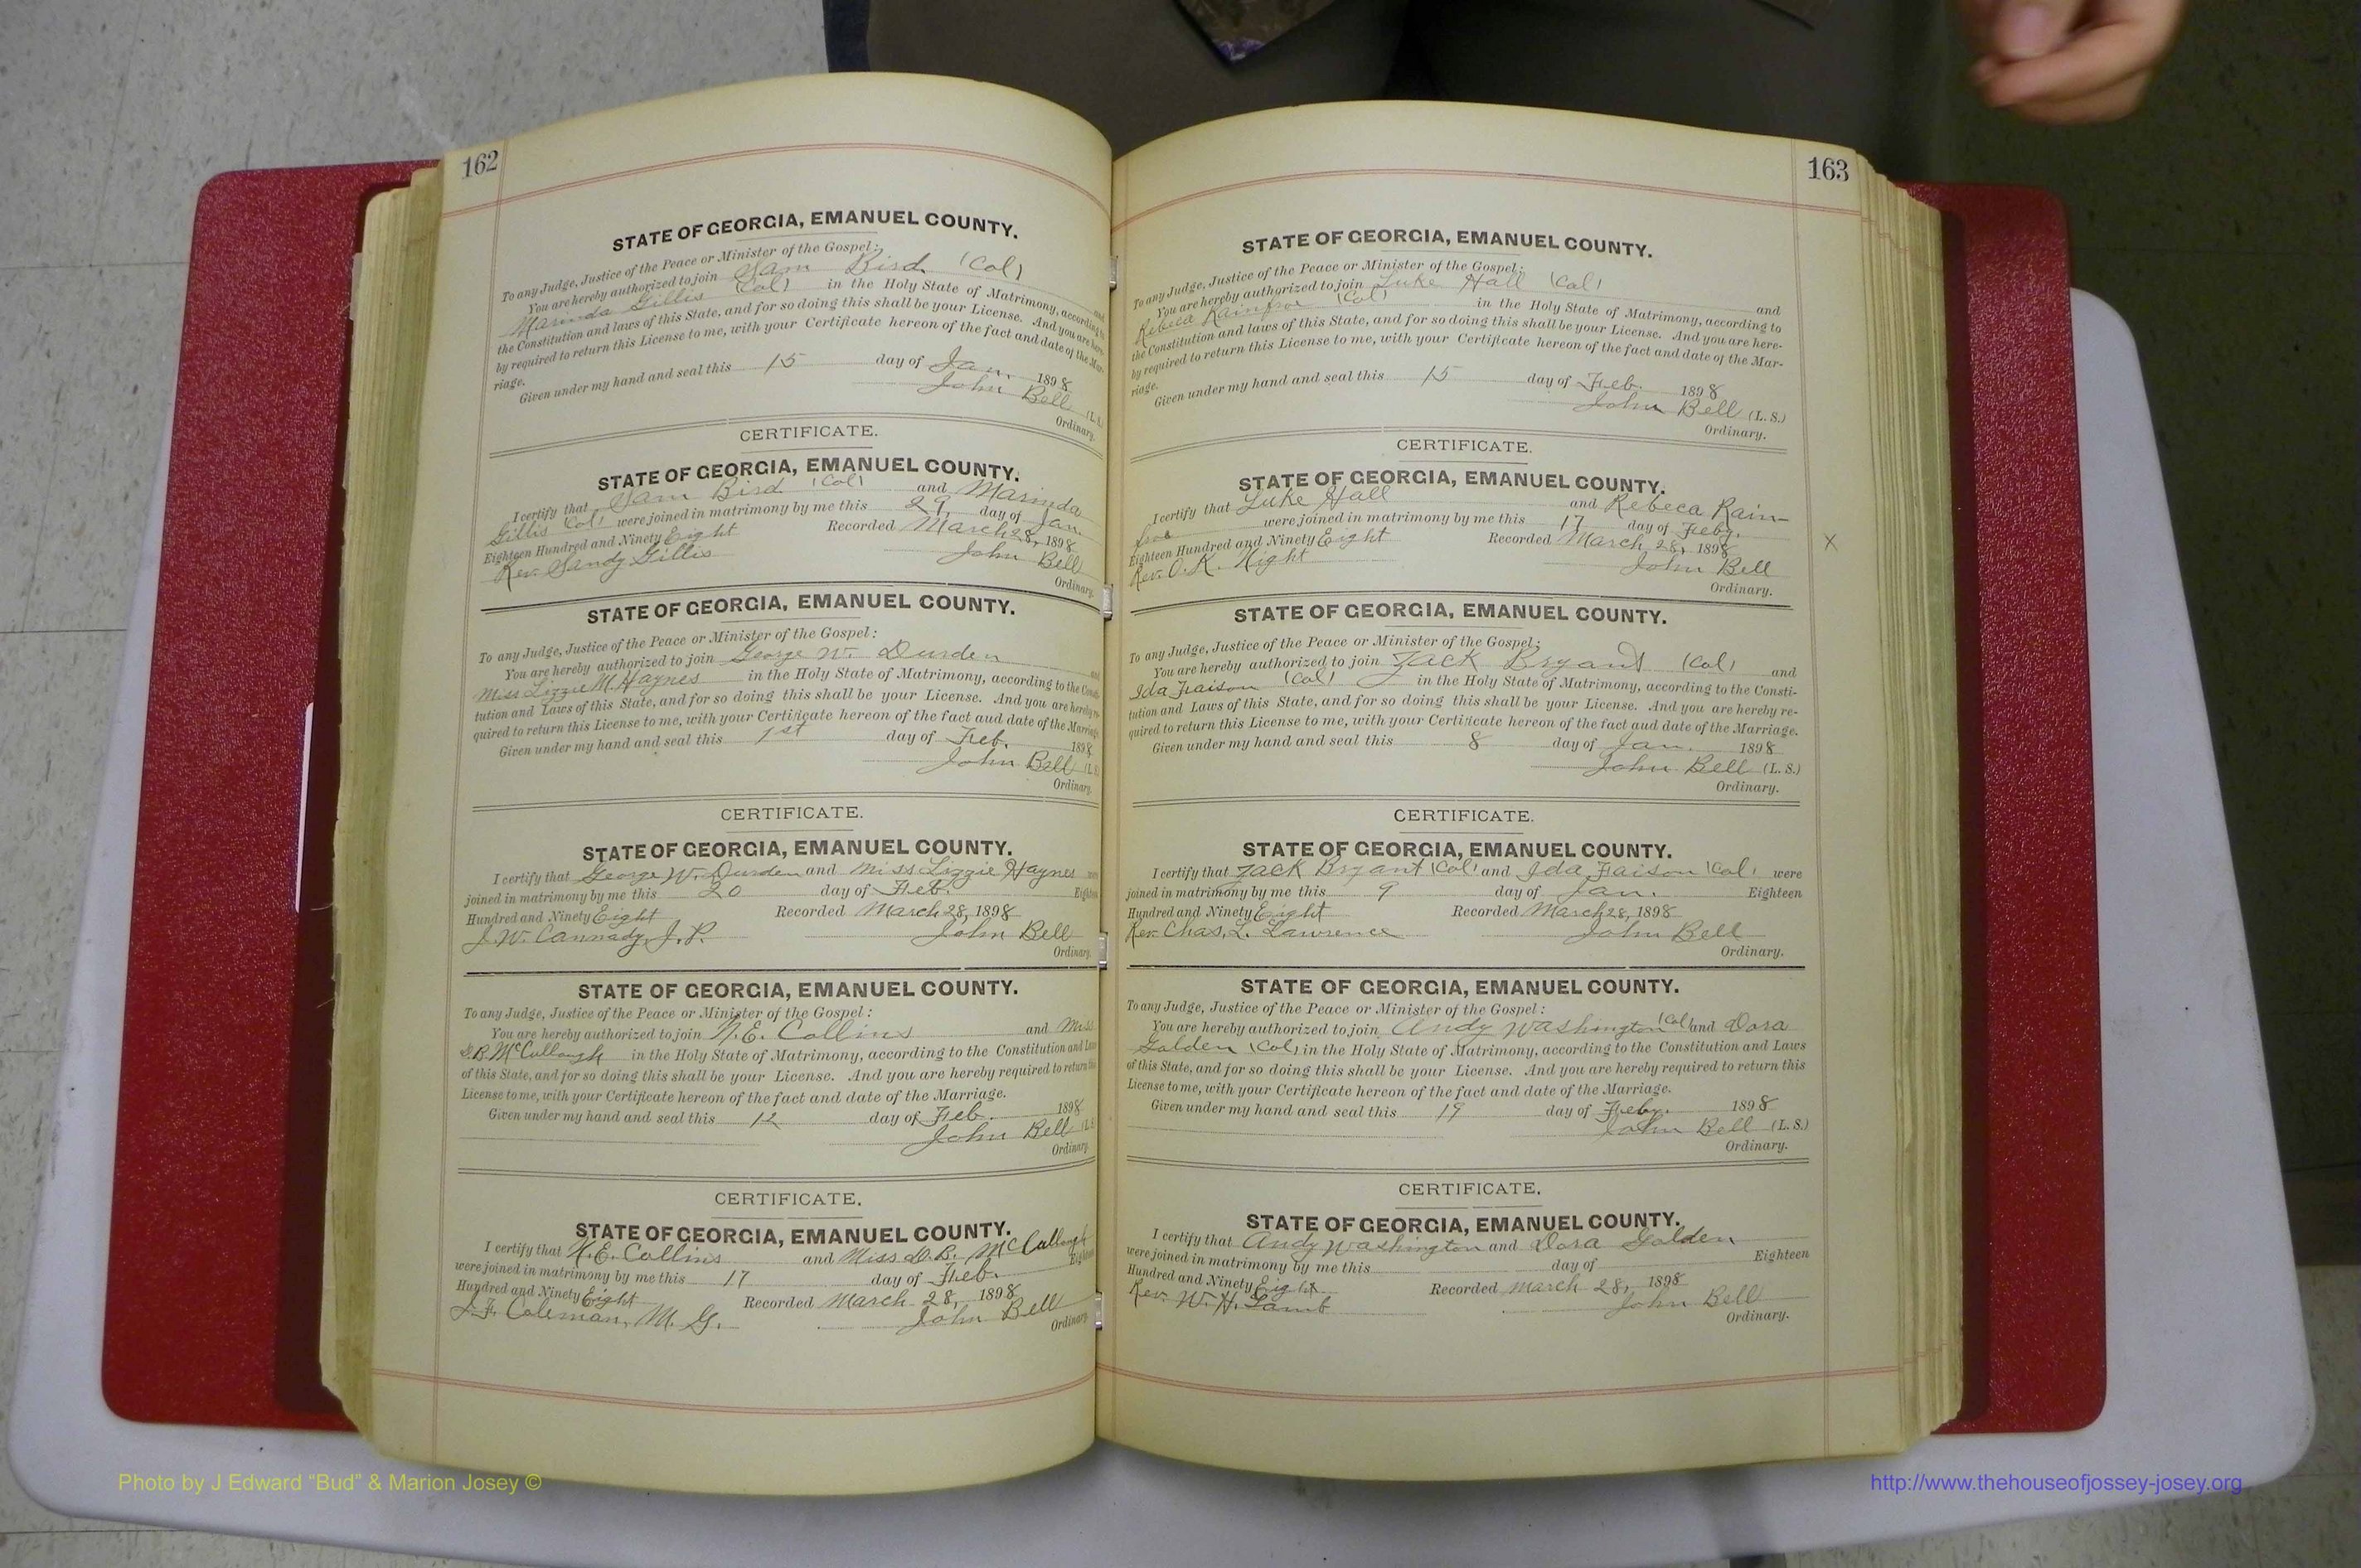 162
STATE OF GEORGIA, EMANUEL COUNTY.
To any Judge, Justice of the Peace or Minister of the Gospel:
You are hereby authorized to join Sam Bird (Col) and
Marinda Gillis (Col) in the Holy State of Matrimony, according to
the Constitution and laws of this State, and for so doing this shall be your License. And you are here-
by required to return this License to me, with your Certificate hereon of the fact and date of the Mar-
riage.
Given under my hand and seal this 15 day of Jan. 1898
John Bell (L. S.)
Ordinary.
CERTIFICATE.
STATE OF GEORGIA, EMANUEL COUNTY.
I certify that Sam Bird (Col) and Marinda
Gillis (Col) were joined in matrimony by me this 29, day of Jan.
Eighteen Hundred and Ninety Eight Recorded March 28, 1898
Rev. Sandy Gillis John Bell
Ordinary.
STATE OF GEORGIA, EMANUEL COUNTY.
To any Judge, Justice of the Peace or Minister of the Gospel:
You are hereby authorized to join George W. Durden and
Miss Lizzie M. Haynes in the Holy State of Matrimony, according to the Consti-
tution and Laws of this State, and for so doing this shall be your License. And you are hereby re-
quired to return this License to me, with your Certificate hereon of the fact aud date of the Marriage.
Given under my hand and seal this 1st day of Feb. 1898
John Bell (L. S.)
Ordinary.
CERTIFICATE.
STATE OF GEORGIA, EMANUEL COUNTY.
I certify that George W. Durden and Miss Lizzie Haynes were
joined in matrimony by me this 20 day of Feb. Eighteen
Hundred and Ninety Eight Recorded March 28, 1898
J. W. Cannady, J. P. John Bell
Ordinary.
STATE OF GEORGIA, EMANUEL COUNTY.
To any Judge, Justice of the Peace or Minister of the Gospel:
You are hereby authorized to join N. E. Collins and Miss
D. B. McCullough in the Holy State of Matrimony, according to the Constitution and Laws
of this State, and for so doing this shall be your License. And you are hereby required to return this
License to me, with your Certificate hereon of the fact and date of the Marriage.
Given under my hand and seal this 12 day of Feb. 1898
John Bell (L. S.)
Ordinary.
CERTIFICATE.
STATE OF GEORGIA, EMANUEL COUNTY.
I certify that N. E. Collins and Miss D. B. McCullough
were joined in matrimony by me this 17 day of Feb. Eighteen
Hundred and Ninety Eight Recorded March 28, 1898
J. F. Coleman, M. G. John Bell
Ordinary.
163
STATE OF GEORGIA, EMANUEL COUNTY.
To any Judge, Justice of the Peace or Minister of the Gospel:
You are hereby authorized to join Luke Hall (Col) and
Rebeca Rainfroe (Col) in the Holy State of Matrimony, according to
the Constitution and laws of this State, and for so doing this shall be your License. And you are here-
by required to return this License to me, with your Certificate hereon of the fact and date of the Mar-
riage.
Given under my hand and seal this 15 day of Feb. 1898
John Bell (L. S.)
Ordinary.
CERTIFICATE.
STATE OF GEORGIA, EMANUEL COUNTY.
I certify that Luke Hall and Rebeca Rain-
froe were joined in matrimony by me this 17 day of Feby.
Eighteen Hundred and Ninety Eight Recorded March 28, 1898
Rev. O. K. Hight John Bell
Ordinary.
X
STATE OF GEORGIA, EMANUEL COUNTY.
To any Judge, Justice of the Peace or Minister of the Gospel:
You are hereby authorized to join Zack Bryant (Col) and
Ida Faison (Col) in the Holy State of Matrimony, according to the Consti-
tution and Laws of this State, and for so doing this shall be your License. And you are hereby re-
quired to return this License to me, with your Certificate hereon of the fact aud date of the Marriage.
Given under my hand and seal this 8 day of Jan. 1898
John Bell (L. S.)
Ordinary.
CERTIFICATE.
STATE OF GEORGIA, EMANUEL COUNTY.
I certify that Zack Bryant (Col) and Ida Faison (Col) were
joined in matrimony by me this 9 day of Jan. Eighteen
Hundred and Ninety Eight Recorded March 28, 1898
Rev. Chas. L. Lawrence John Bell
Ordinary.
STATE OF GEORGIA, EMANUEL COUNTY.
To any Judge, Justice of the Peace or Minister of the Gospel:
You are hereby authorized to join Andy Washington (Col) and Dora
Golden (Col) in the Holy State of Matrimony, according to the Constitution and Laws
of this State, and for so doing this shall be your License. And you are hereby required to return this
License to me, with your Certificate hereon of the fact and date of the Marriage.
Given under my hand and seal this 19 day of Feby. 1898
John Bell (L. S.)
Ordinary.
CERTIFICATE.
STATE OF GEORGIA, EMANUEL COUNTY.
I certify that Andy Washington and Dora Golden
were joined in matrimony by me this day of Eighteen
Hundred and Ninety Eight Recorded March 28, 1898
Rev. W. H. Lamb John Bell
Ordinary.
Photo by J Edward “Bud” & Marion Josey ©
http://www.thehouseofjossey-josey.org